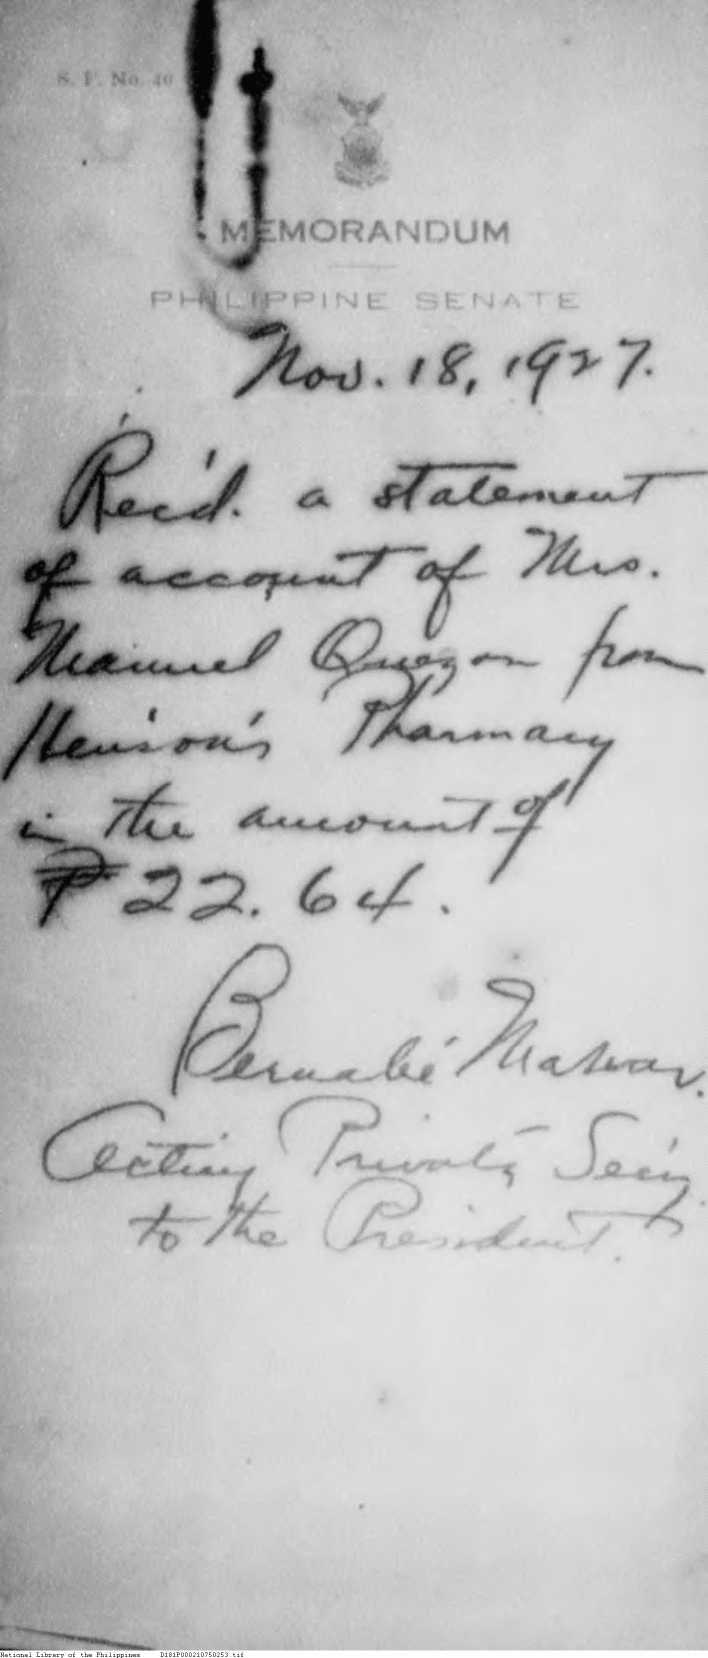 S. F. No. 40
MEMORANDUM
PHILIPPINE SENATE
Nov. 18, 1927.
Rec'd. a statement
of account of Mrs.
Manuel Quezon from
Henson's Pharmacy
in the amount of
₱22.64.
Bernabé
Acting Private Sec'y
to the President.
National Library of the Philippines D181P000210750253.tif